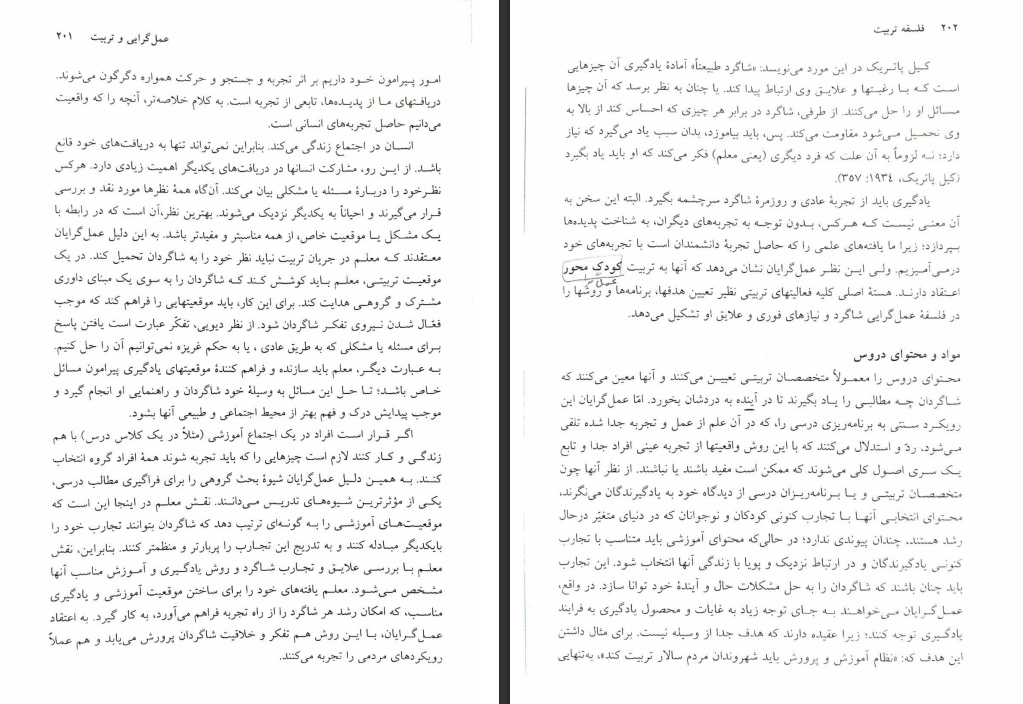 عمل‌گرایی و تربیت ۲۰۱
امور پیرامون خود داریم بر اثر تجربه و جستجو و حرکت همواره دگرگون می‌شوند.
دریافتهای ما از پدیده‌ها، تابعی از تجربه است. به کلام خلاصه‌تر، آنچه را که واقعیت
می‌دانیم حاصل تجربه‌های انسانی است.
انسان در اجتماع زندگی می‌کند. بنابراین نمی‌تواند تنها به دریافت‌های خود قانع
باشد. از این رو، مشارکت انسانها در دریافت‌های یکدیگر اهمیت زیادی دارد. هرکس
نظرخود را دربارهٔ مسئله یا مشکلی بیان می‌کند. آن‌گاه همهٔ نظرها مورد نقد و بررسی
قرار می‌گیرند و احیاناً به یکدیگر نزدیک می‌شوند. بهترین نظر،آن است که در رابطه با
یک مشکل یا موقعیت خاص، از همه مناسبتر و مفیدتر باشد. به این دلیل عمل‌گرایان
معتقدند که معلم در جریان تربیت نباید نظر خود را به شاگردان تحمیل کند. در یک
موقعیت تربیتی، معلم باید کوشش کند که شاگردان را به سوی یک مبنای داوری
مشترک و گروهی هدایت کند. برای این کار، باید موقعیتهایی را فراهم کند که موجب
فعّال شدن نیروی تفکر شاگردان شود. از نظر دیویی، تفکّر عبارت است یافتن پاسخ
برای مسئله یا مشکلی که به طریق عادی ، یا به حکم غریزه نمی‌توانیم آن را حل کنیم.
به عبارت دیگر، معلم باید سازنده و فراهم کنندهٔ موقعیتهای یادگیری پیرامون مسائل
خاص باشد؛ تا حل این مسائل به وسیلهٔ خود شاگردان و راهنمایی او انجام گیرد و
موجب پیدایش درک و فهم بهتر از محیط اجتماعی و طبیعی آنها بشود.
اگر قرار است افراد در یک اجتماع آموزشی (مثلاً در یک کلاس درس) با هم
زندگی و کار کنند لازم است چیزهایی را که باید تجربه شوند همهٔ افراد گروه انتخاب
کنند. به همین دلیل عمل‌گرایان شیوهٔ بحث گروهی را برای فراگیری مطالب درسی،
یکی از مؤثرترین شیوه‌های تدریس می‌دانند. نقش معلم در اینجا این است که
موقعیت‌های آموزشی را به گونه‌ای ترتیب دهد که شاگردان بتوانند تجارب خود را
بایکدیگر مبادله کنند و به تدریج این تجارب را پربارتر و منظمتر کنند. بنابراین، نقش
معلم با بررسی علایق و تجارب شاگرد و روش یادگیری و آموزش مناسب آنها
مشخص می‌شود. معلم یافته‌های خود را برای ساختن موقعیت آموزشی و یادگیری
مناسب، که امکان رشد هر شاگرد را از راه تجربه فراهم می‌آورد، به کار گیرد. به اعتقاد
عمل‌گرایان، با این روش هم تفکر و خلاقیت شاگردان پرورش می‌یابد و هم عملاً
رویکردهای مردمی را تجربه می‌کنند.
۲۰۲ فلسفه تربیت
کیل پاتریک در این مورد می‌نویسد: «شاگرد طبیعتاً» آمادهٔ یادگیری آن چیزهایی
است که با رغبتها و علایق وی ارتباط پیدا کند. یا چنان به نظر برسد که آن چیزها
مسائل او را حل می‌کنند. از طرفی، شاگرد در برابر هر چیزی که احساس کند از بالا به
وی تحمیل می‌شود مقاومت می‌کند. پس، باید بیاموزد، بدان سبب یاد می‌گیرد که نیاز
دارد؛ نه لزوماً به آن علت که فرد دیگری (یعنی معلم) فکر می‌کند که او باید یاد بگیرد
(کیل پاتریک، ۱۹۳۴: ۳۵۷).
یادگیری باید از تجربهٔ عادی و روزمرهٔ شاگرد سرچشمه بگیرد. البته این سخن به
آن معنی نیست که هرکس، بدون توجه به تجربه‌های دیگران، به شناخت پدیده‌ها
بپردازد؛ زیرا ما یافته‌های علمی را که حاصل تجربهٔ دانشمندان است با تجربه‌های خود
درمی‌آمیزیم. ولی این نظر عمل‌گرایان نشان می‌دهد که آنها به تربیت کودک محور
عمل
اعتقاد دارند. هستهٔ اصلی کلیه فعالیتهای تربیتی نظیر تعیین هدفها، برنامه‌ها و روشها را
در فلسفهٔ عمل‌گرایی شاگرد و نیازهای فوری و علایق او تشکیل می‌دهد.
مواد و محتوای دروس
محتوای دروس را معمولاً متخصصان تربیتی تعیین می‌کنند و آنها معین می‌کنند که
شاگردان چه مطالبی را یاد بگیرند تا در آینده به دردشان بخورد. امّا عمل‌گرایان این
رویکرد سنتی به برنامه‌ریزی درسی را، که در آن علم از عمل و تجربه جدا شده تلقی
می‌شود، ردّ و استدلال می‌کنند که با این روش واقعیتها از تجربه عینی افراد جدا و تابع
یک سری اصول کلی می‌شوند که ممکن است مفید باشند یا نباشند. از نظر آنها چون
متخصصان تربیتی و یا برنامه‌ریزان درسی از دیدگاه خود به یادگیرندگان می‌نگرند،
محتوای انتخابی آنها با تجارب کنونی کودکان و نوجوانان که در دنیای متغیّر درحال
رشد هستند، چندان پیوندی ندارد؛ در حالی‌که محتوای آموزشی باید متناسب با تجارب
کنونی یادگیرندگان و در ارتباط نزدیک و پویا با زندگی آنها انتخاب شود. این تجارب
باید چنان باشند که شاگردان را به حل مشکلات حال و آیندهٔ خود توانا سازد. در واقع،
عمل‌گرایان می‌خواهند به جای توجه زیاد به غایات و محصول یادگیری به فرایند
یادگیری توجه کنند؛ زیرا عقیده دارند که هدف جدا از وسیله نیست. برای مثال داشتن
این هدف که: «نظام آموزش و پرورش باید شهروندان مردم سالار تربیت کند»، به‌تنهایی